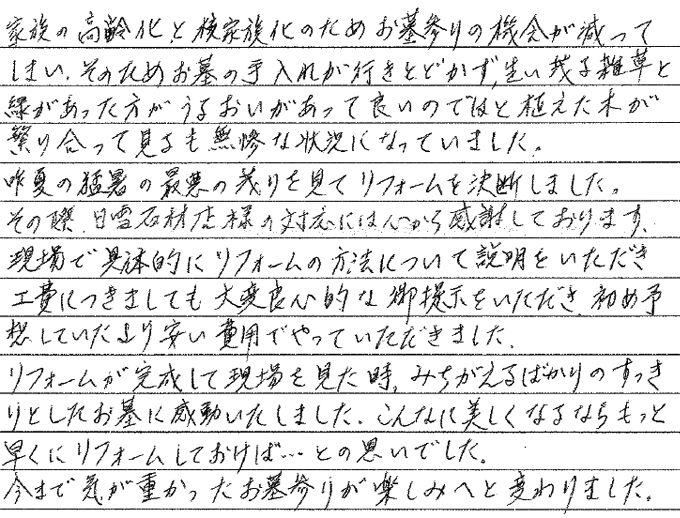 家族の高齢化と核家族化のためお墓参りの機会が減って
しまい、そのためお墓の手入れが行きとどかず、生い茂る雑草と
緑があった方がうるおいがあって良いのではと植えた木が
繁り合って見るも無惨な状況になっていました。
昨夏の猛暑の最悪の茂りを見てリフォームを決断しました。
その際、日雪石材店様の対応には心から感謝しております、
現場で具体的にリフォームの方法について説明をいただき
工費につきましても大変良心的な御提示をいただき、初め予
想していたより安い費用でやっていただきました、
リフォームが完成して現場を見た時、みちがえるばかりのすっき
りとしたお墓に感動いたしました、こんなに美しくなるならもっと
早くにリフォームしておけば…との思いでした。
今まで気が重かったお墓参りが楽しみへと変わりました。